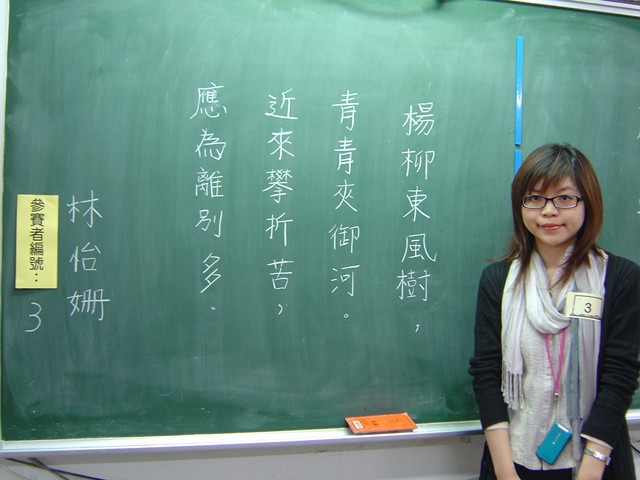 楊柳東風樹，
青青夾御河。
近來攀折苦，
應為離別多。
林怡姍
參賽者編號：
3
3